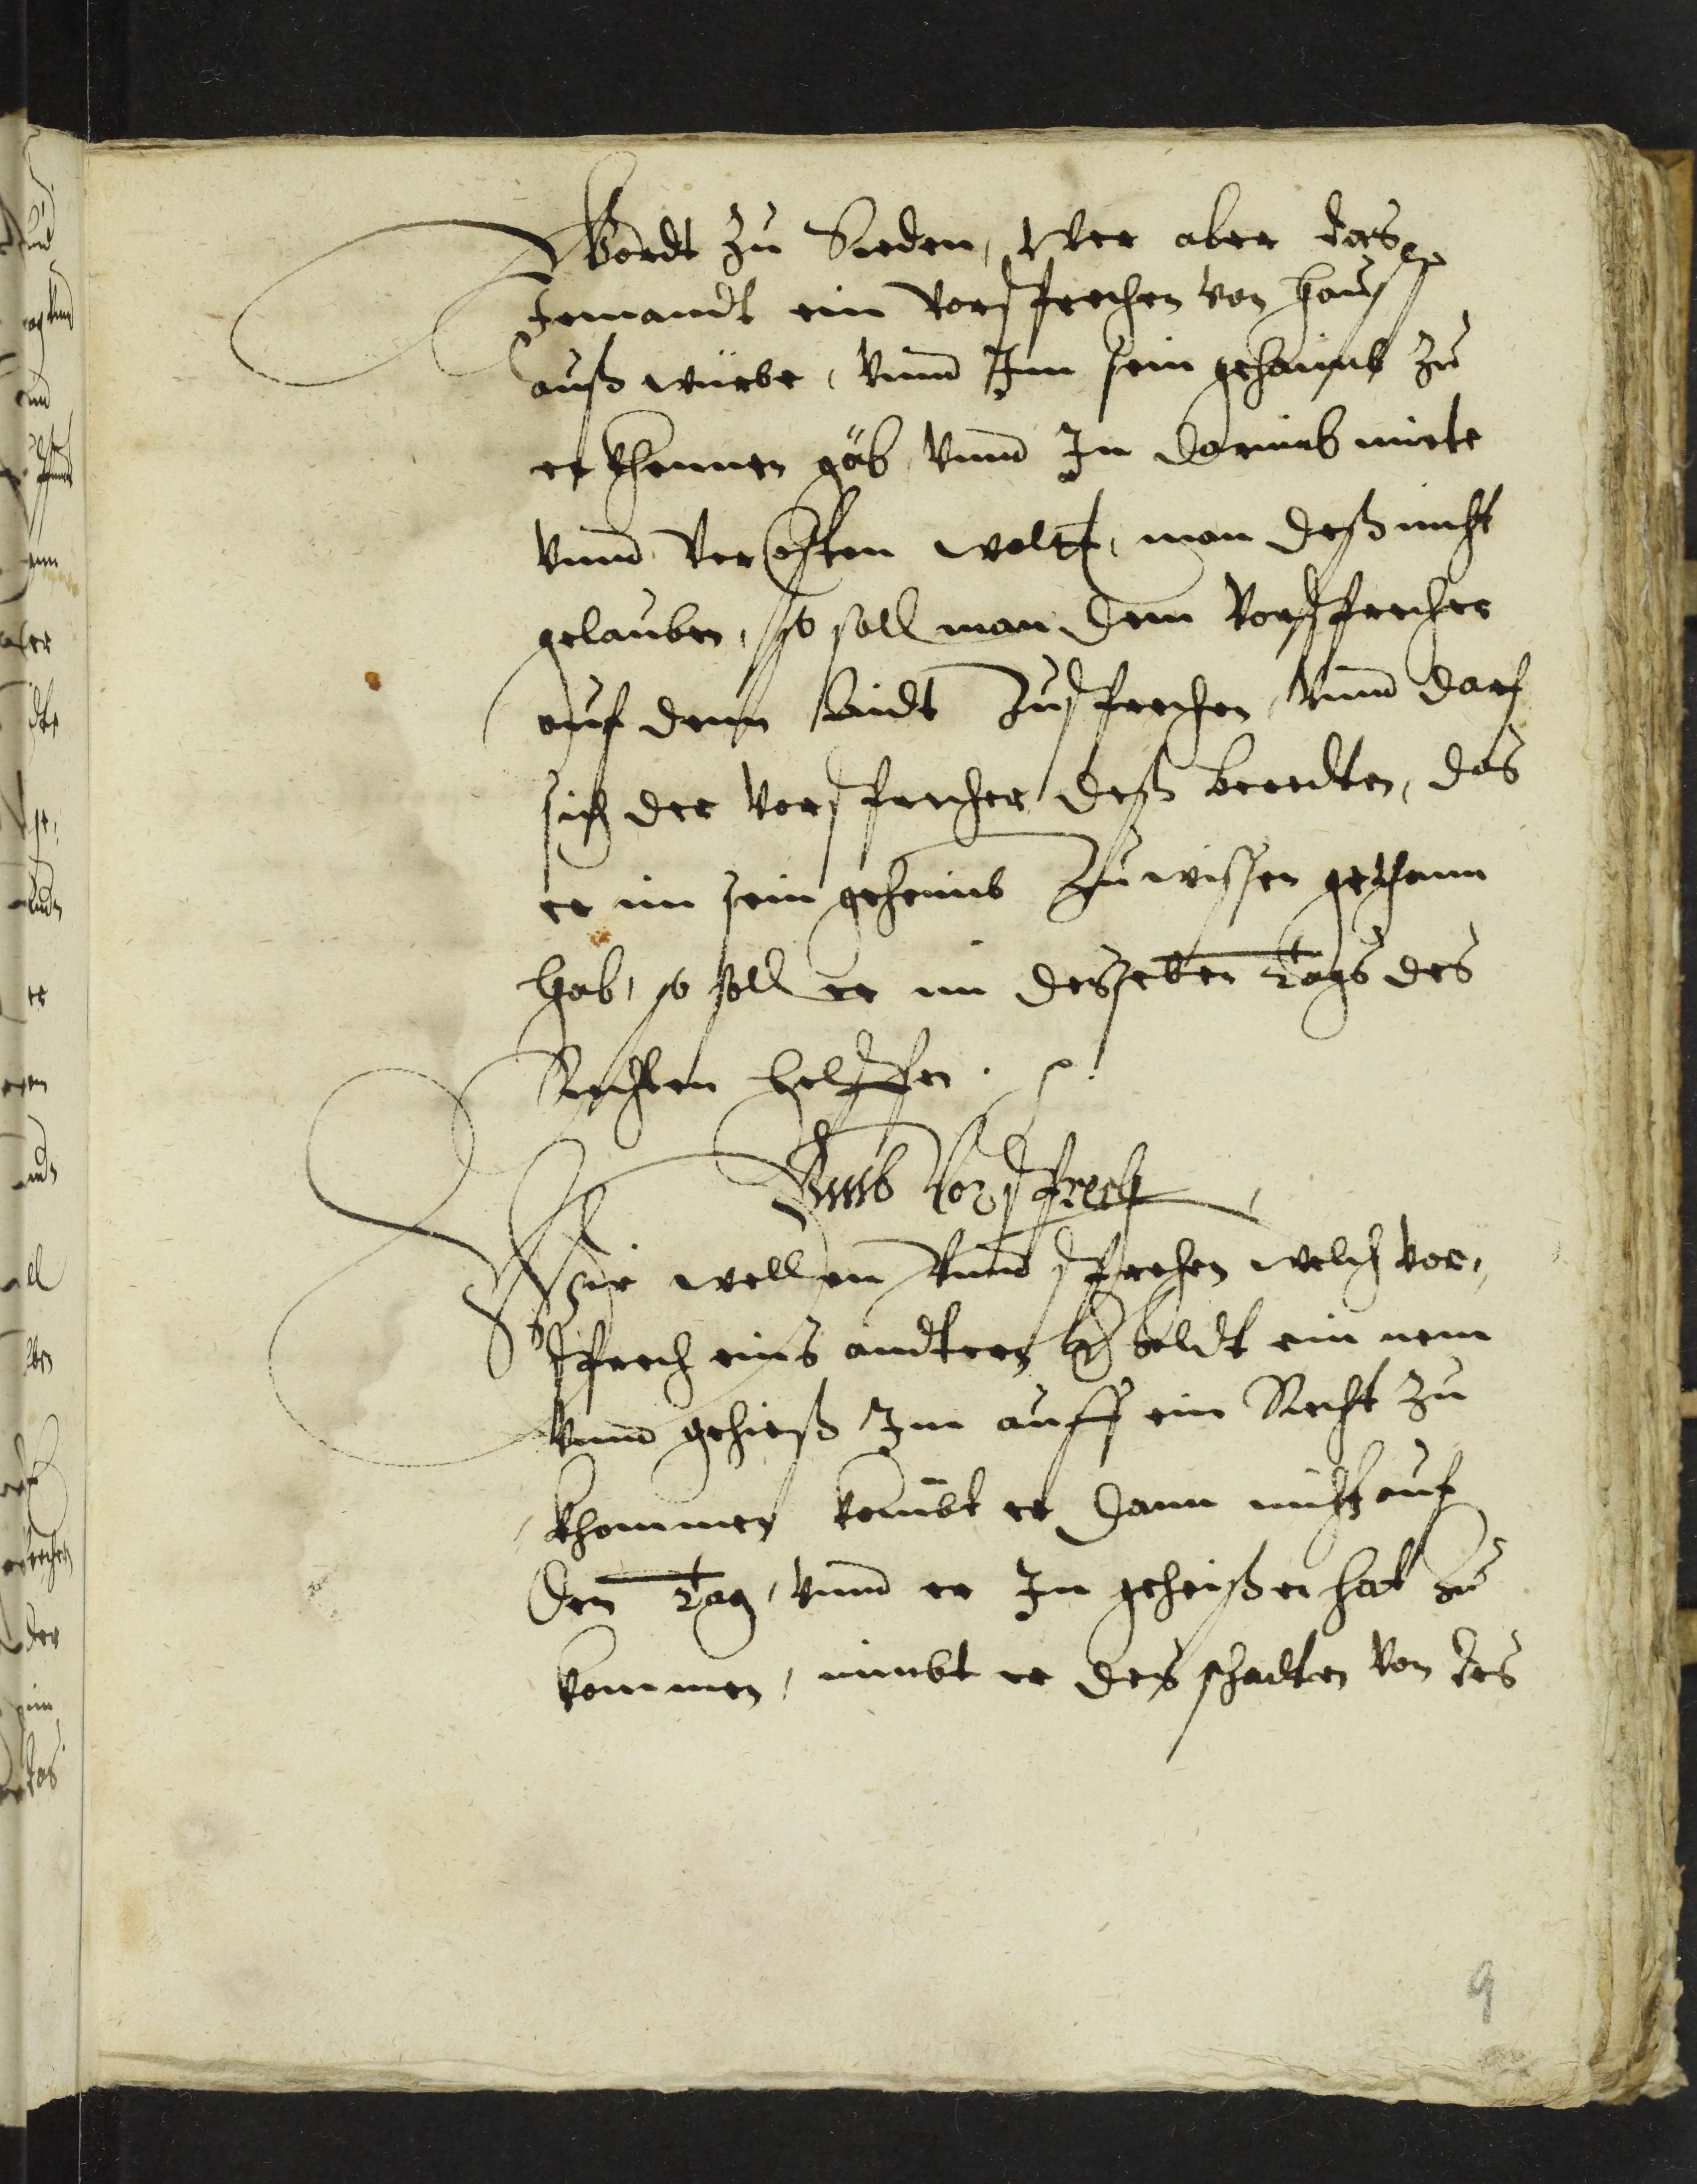 Wordt zu Reden, Wer aber das
Jemandt ein Vorsprechen von hauß
auß würbe, vnnd Jm sein gehaimb zu
erkhennen gäb, vnnd In darumb miete
vnnd Verhasten wolt, man deß nicht
gelauben, so soll man dem Vorsprecher
auf denn Aidt zusprechen, vnnd darf
sich der Vorsprecher deß beredten, das
er im sein geheimb zu wissen gethann
hab, so soll er im desselben Tags des
Rechten helffen.
Vmb Vorsprech
Wir wellen vnnd sprechen welch vor,
sprech eins andtern soldt ein nem
vnnd gehieß Im auff ein Recht zu
khommen kombt er dann nicht auf
den Tag, vnnd er In geheißen hat zu
kommen, nimbt er des schadten von des
9